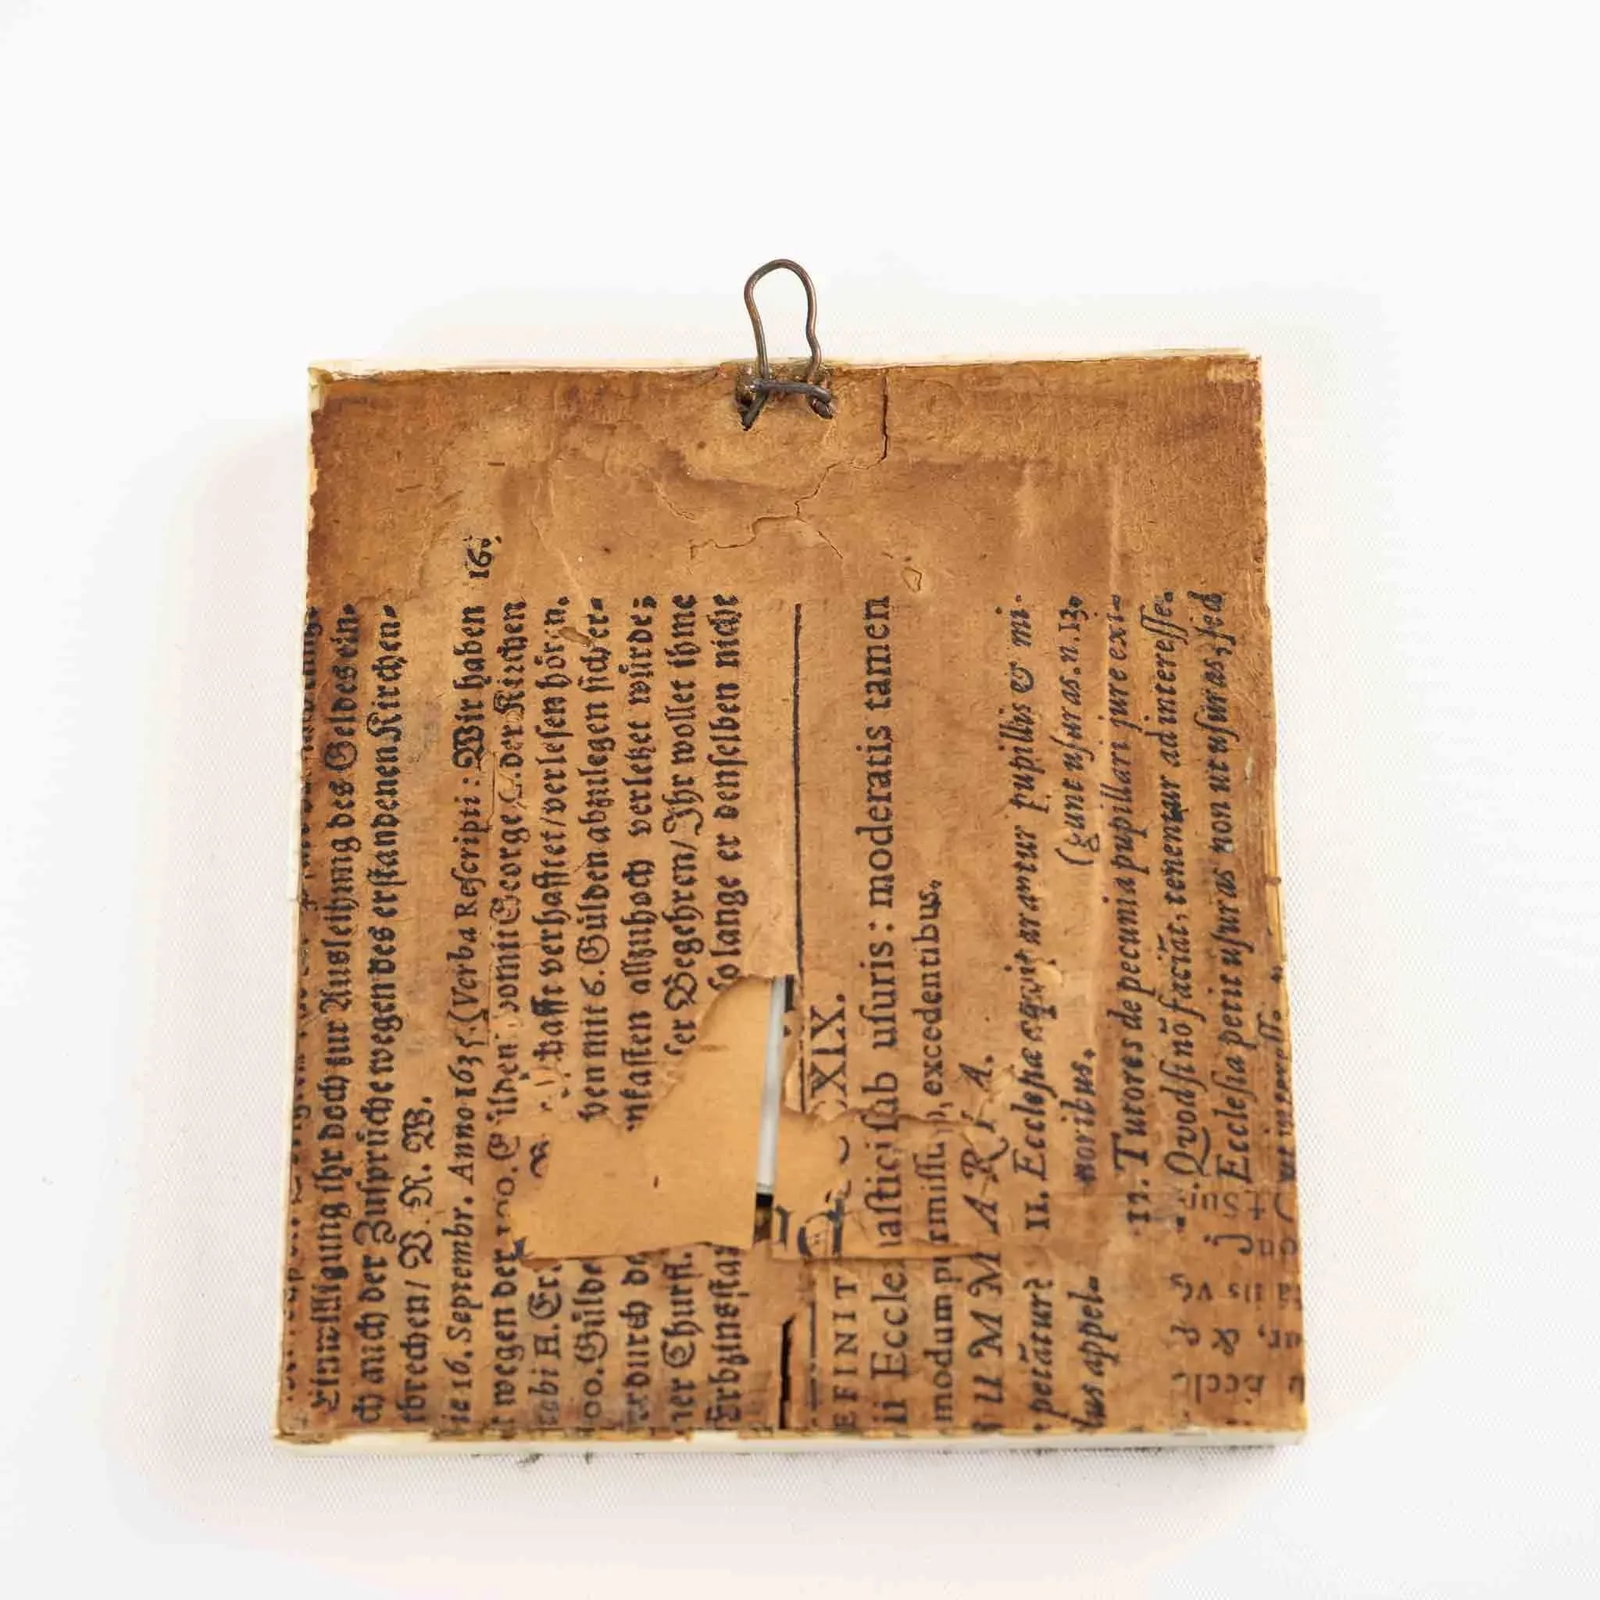 Einwilligung ihr doch zur Ausleihung des Geldes ein-
ch auch der Zusprüche wegen des erstandenen Kirchen-
tbrechen/ V. R. W.
ie 16. Septembr. Anno 1635. (Verba Rescripti: Wir haben 16.
r wegen der 100. Gülden womit George C. der Kirchen
hafft verhafftet/ verlesen hören.
00. Gülde ben mit 6. Gülden abzulegen sich er-
rdurch de nkasten allzuhoch verletzet würde;
ner Churfl. ser Begehren/ Ihr wollet ihme
Erbzinßta so lange er denselben nicht
EFINIT XIX.
ii Eccle iastici sub usuris: moderatis tamen
modum p rmissu, excedentibus.
UMMARIA.
petāturè II. Ecclesiæ æquiparantur pupillis & mi-
lus appel. noribus. (gunt usuras. n. 13.
17. Tutores de pecunia pupillari jure exi-
Qvod si nō faciāt, tenentur ad interesse.
Ecclesia petit usuras non ut usuras, sed
ut interess.